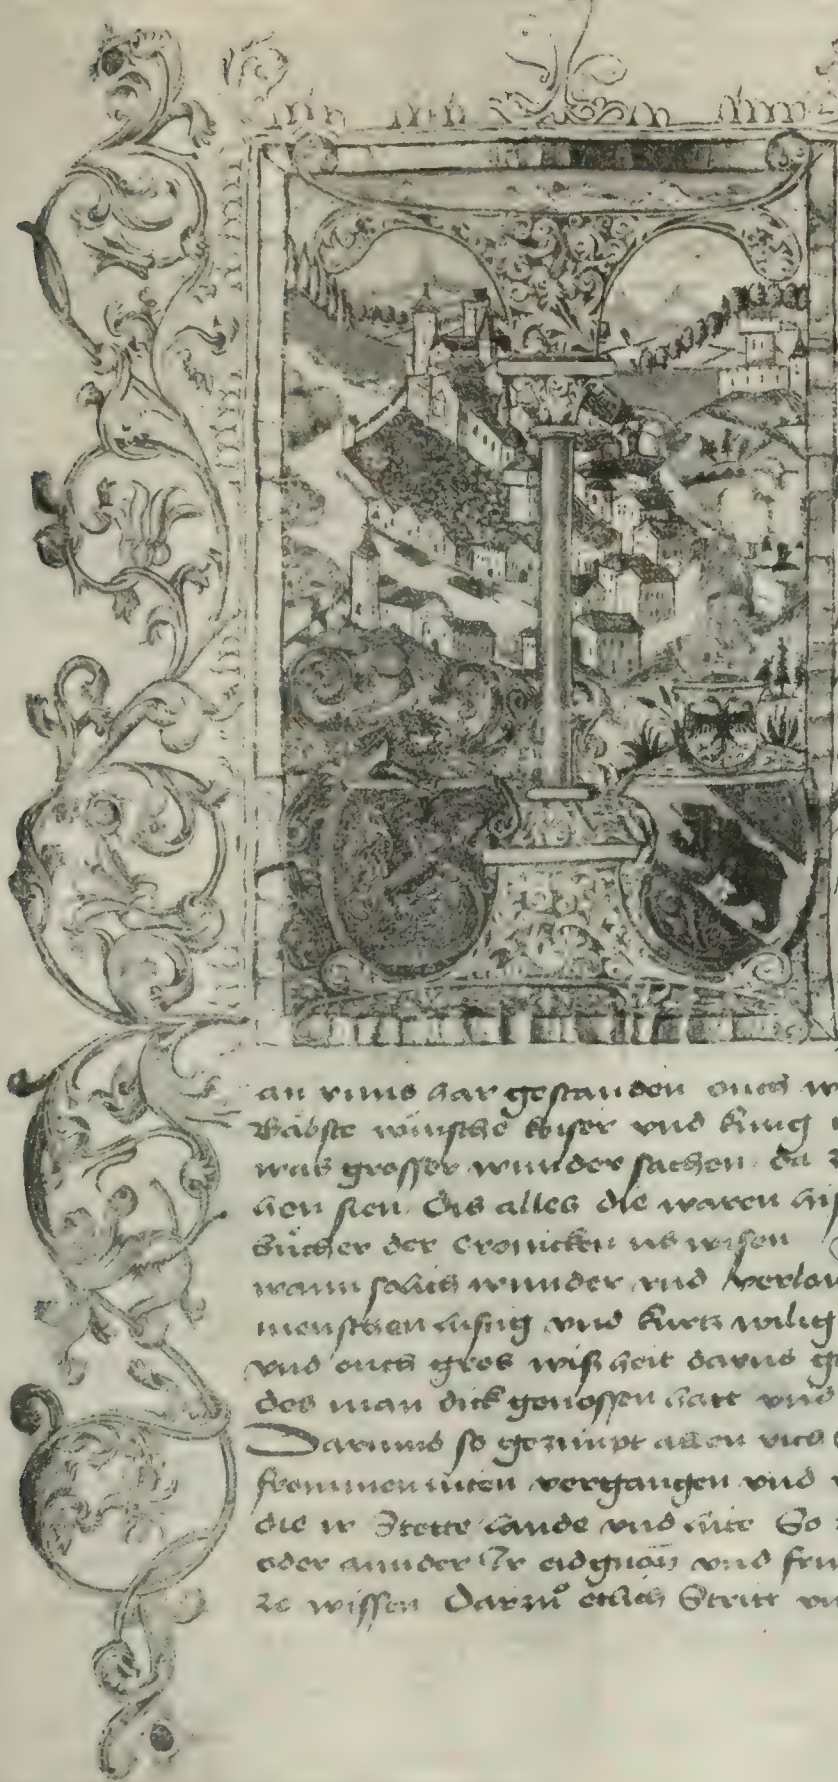 an unns har gestanden ouch w
Bäbste römsche keiser und kung
was grosser wunder sachen da
hen sien Dis alles die waren his
Bücher der Cronicken us wisen
wann solichs wunder und verlou
menschen lustig und kurtz wilig
und ouch gros wißheit darus ge
des man dick genossen hatt und
Darumb so gezimpt allen
frommen lüten vergangen und
die ir Stette lande und lüte So
oder annder Ir eidgnon und frün
ze wissen Darzuͦ etlich Stritt un